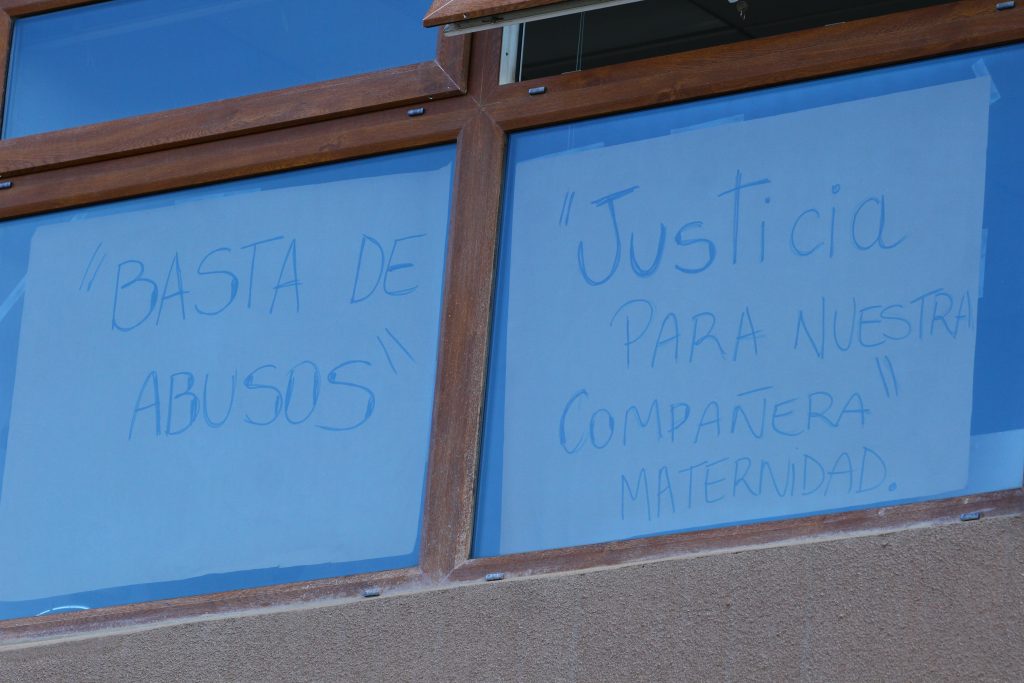 "BASTA DE
ABUSOS"
"Justicia
PARA NUESTRA
COMPAÑERA"
MATERNIDAD.